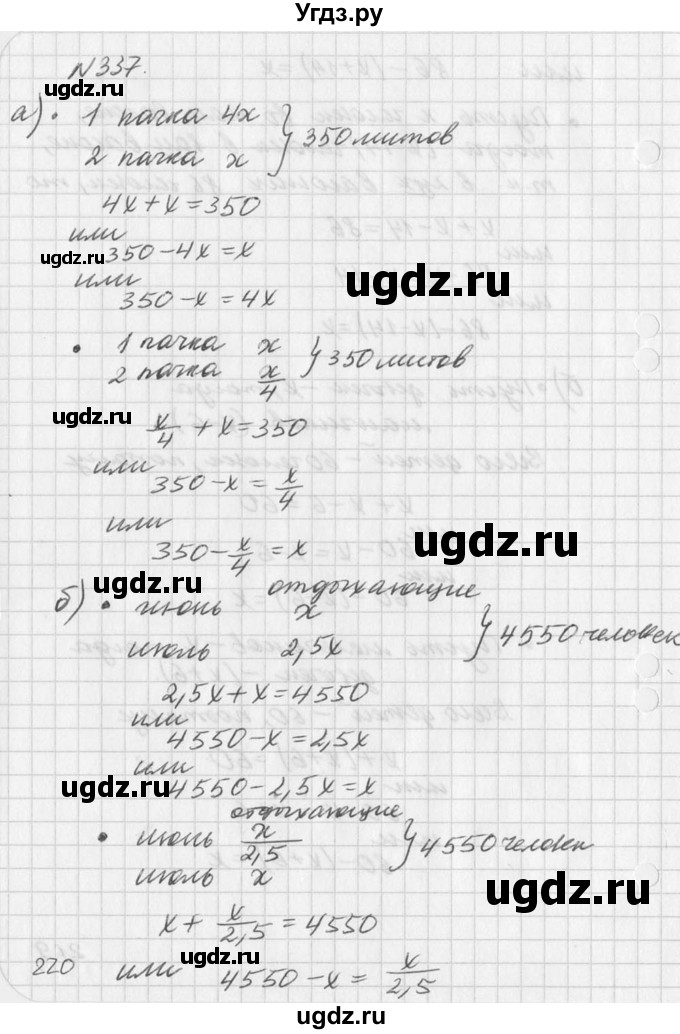 Угдз.ру
N337.
а) • 1 пачка 4x
2 пачка x } 350 листов
4x + x = 350
или
350 - 4x = x
или
350 - x = 4x
• 1 пачка x
2 пачка x/4 } 350 листов
x/4 + x = 350
или
350 - x = x/4
или
350 - x/4 = x
отдыхающие
б) • июнь x
июль 2,5x } 4550 человек
2,5x + x = 4550
или
4550 - x = 2,5x
или
4550 - 2,5x = x
отдыхающие
• июнь x/2,5
июль x } 4550 человек
x + x/2,5 = 4550
220 или 4550 - x = x/2,5
ugdz.ru
ugdz.ru
ugdz.ru
ugdz.ru
ugdz.ru
ugdz.ru
ugdz.ru
ugdz.ru
ugdz.ru
ugdz.ru
ugdz.ru